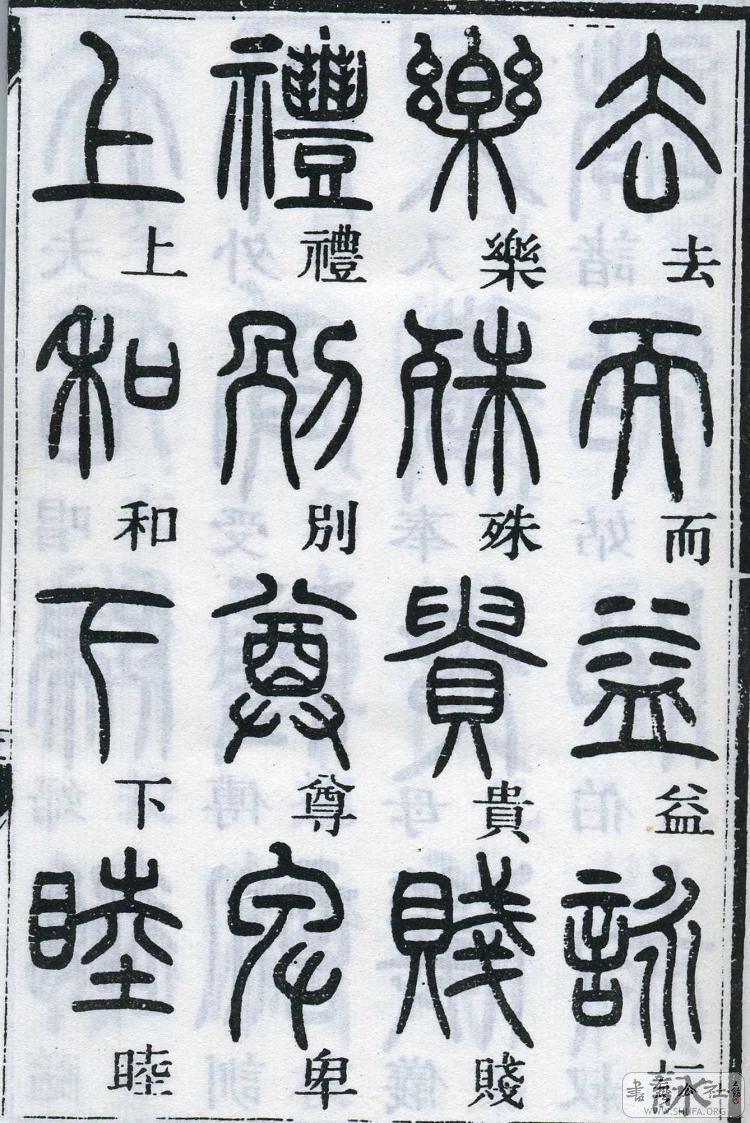 去而益詠
樂殊貴賤
禮別尊卑
上和下睦
WWW.SHUFA.ORG